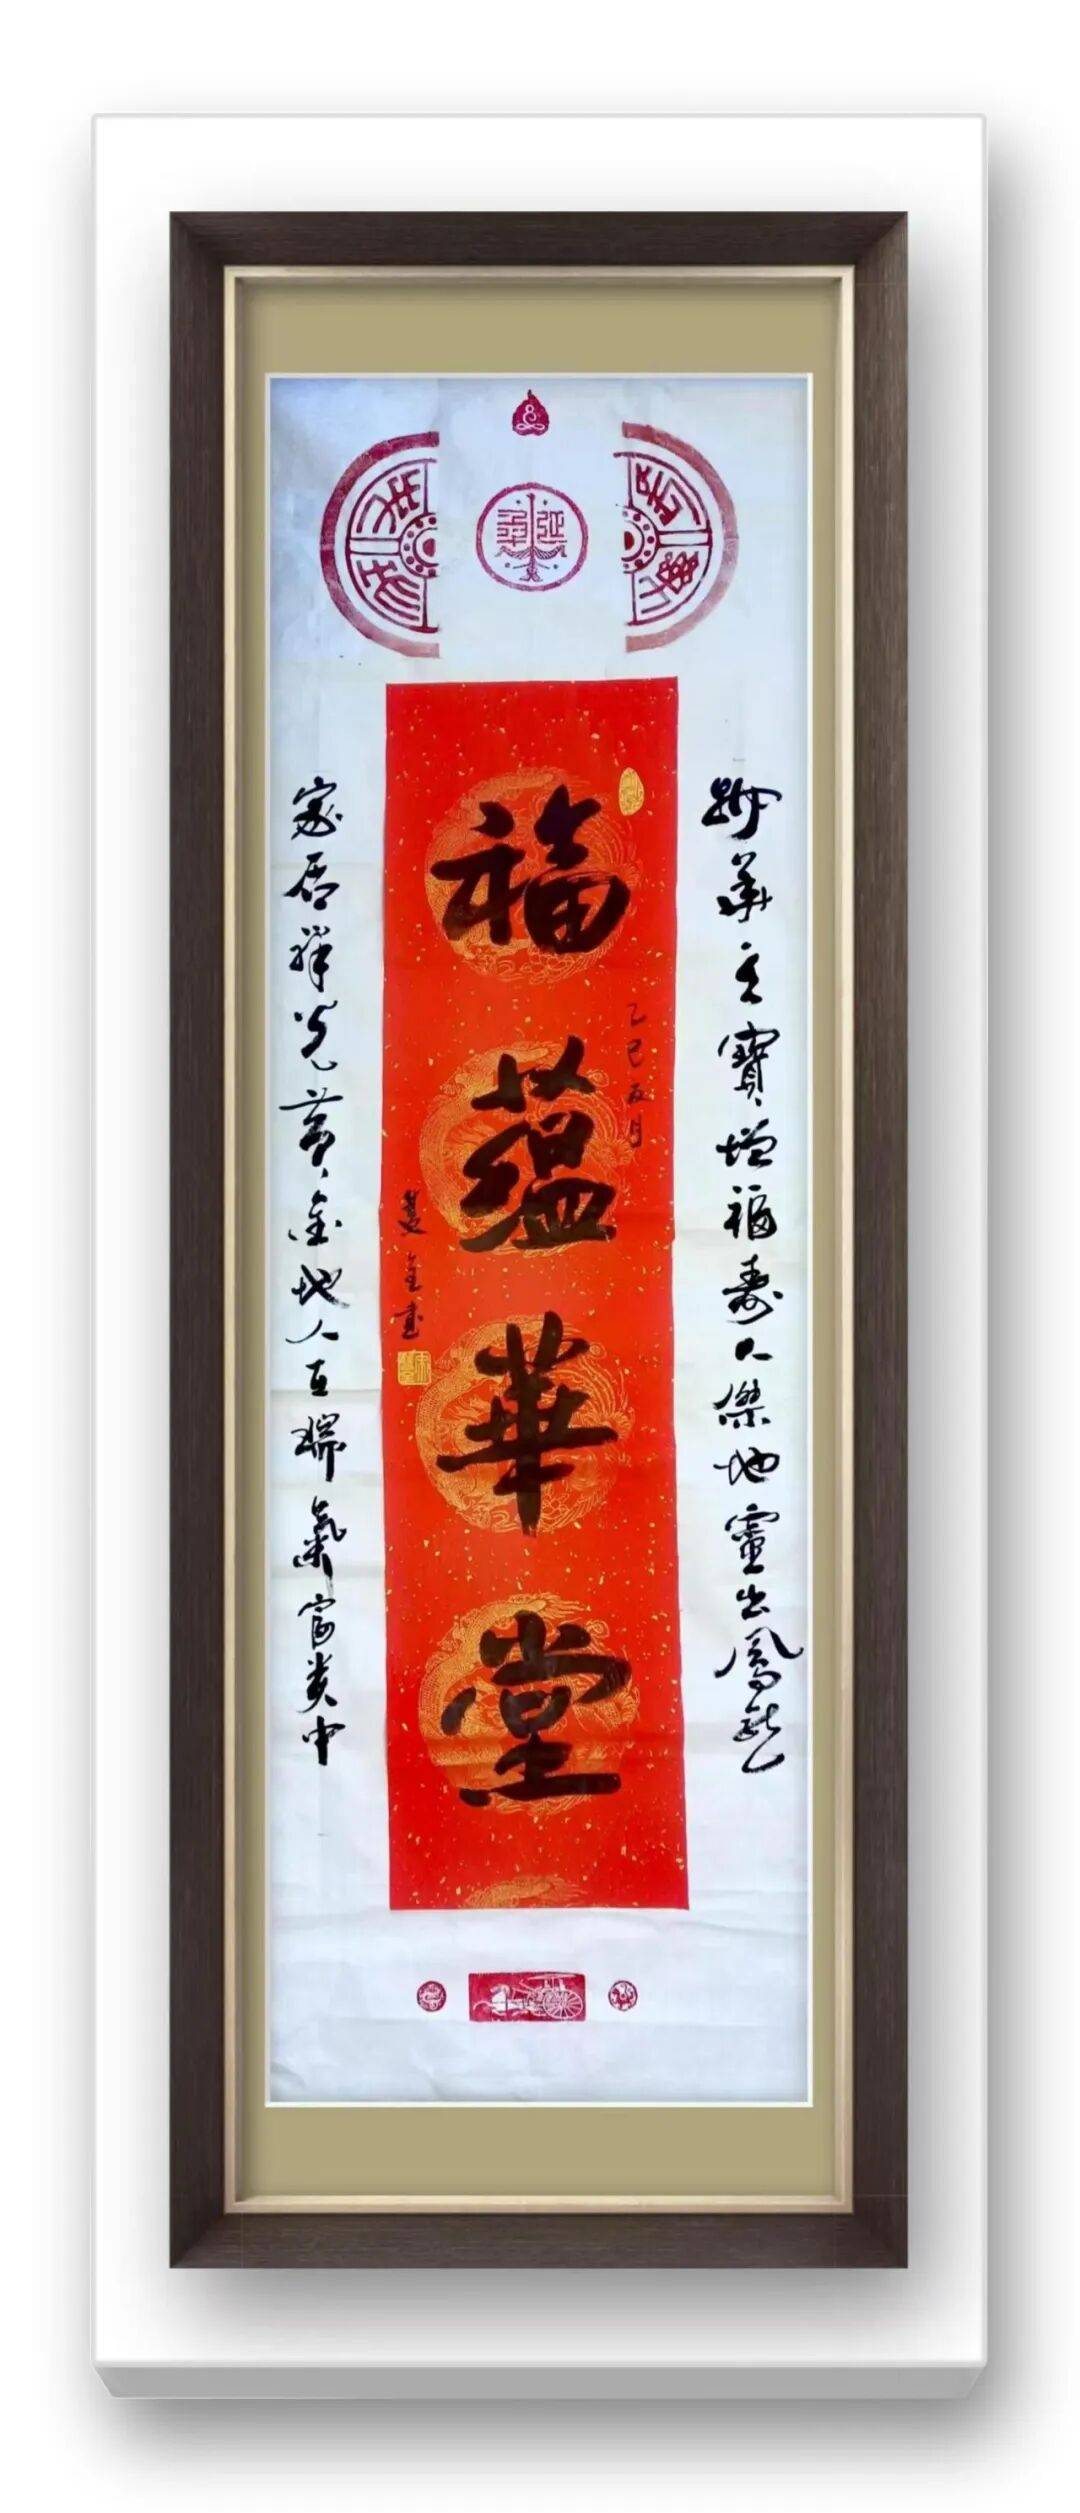 華天寶增福壽人傑地靈出鳳龍
福蕴華堂
乙巳月
書
家居祥光黄金地人瑞氣富贵中